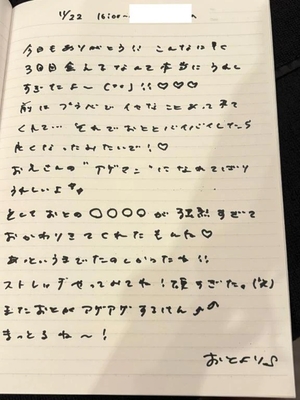 11/22 16:00~
今日もありがとう!! こんなに早く
3回目会えてなんて本当にうれし
すぎたよ〜(˘˘)!! ♡♡♡
前はプライベでイヤなことあって来て
くれて… それでおととバイバイしたら
良くなったみたいで!♡
おにさんの"アゲマン"になれてばり
うれしいよ
そしておとの〇〇〇〇が強烈すぎて
おかわりきてくれたもんね♡
あっというまでたのしかったね!!
ストレッチやってみてね! 硬すぎた。(笑)
またおとがアゲアゲするけん♪の
まっとるね〜!
おとより♪